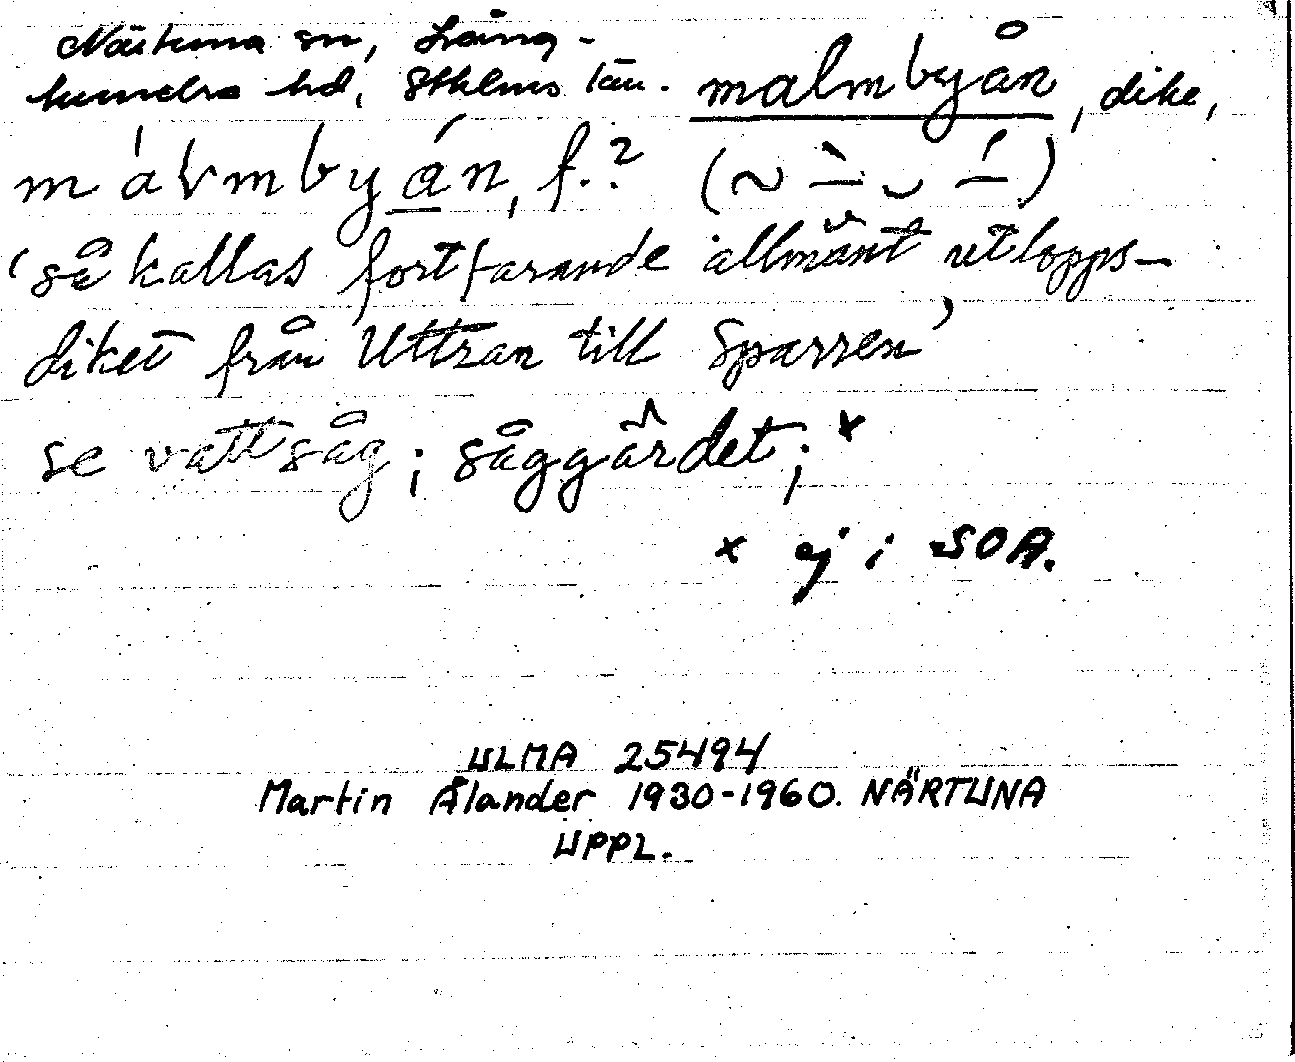 Närtuna sn, Lång-
hundra hd, Sthlms län. malmbyån, dike,
malmbyån, f.? (~ – ◡ –)
'så kallas fortfarande allmänt utlopps-
diket från Uttran till Sparren'
se vattsåg; såggärdet; x
x ej i SOA.
ULMA 25494
Martin Ålander 1930-1960. NÄRTUNA
UPPL.